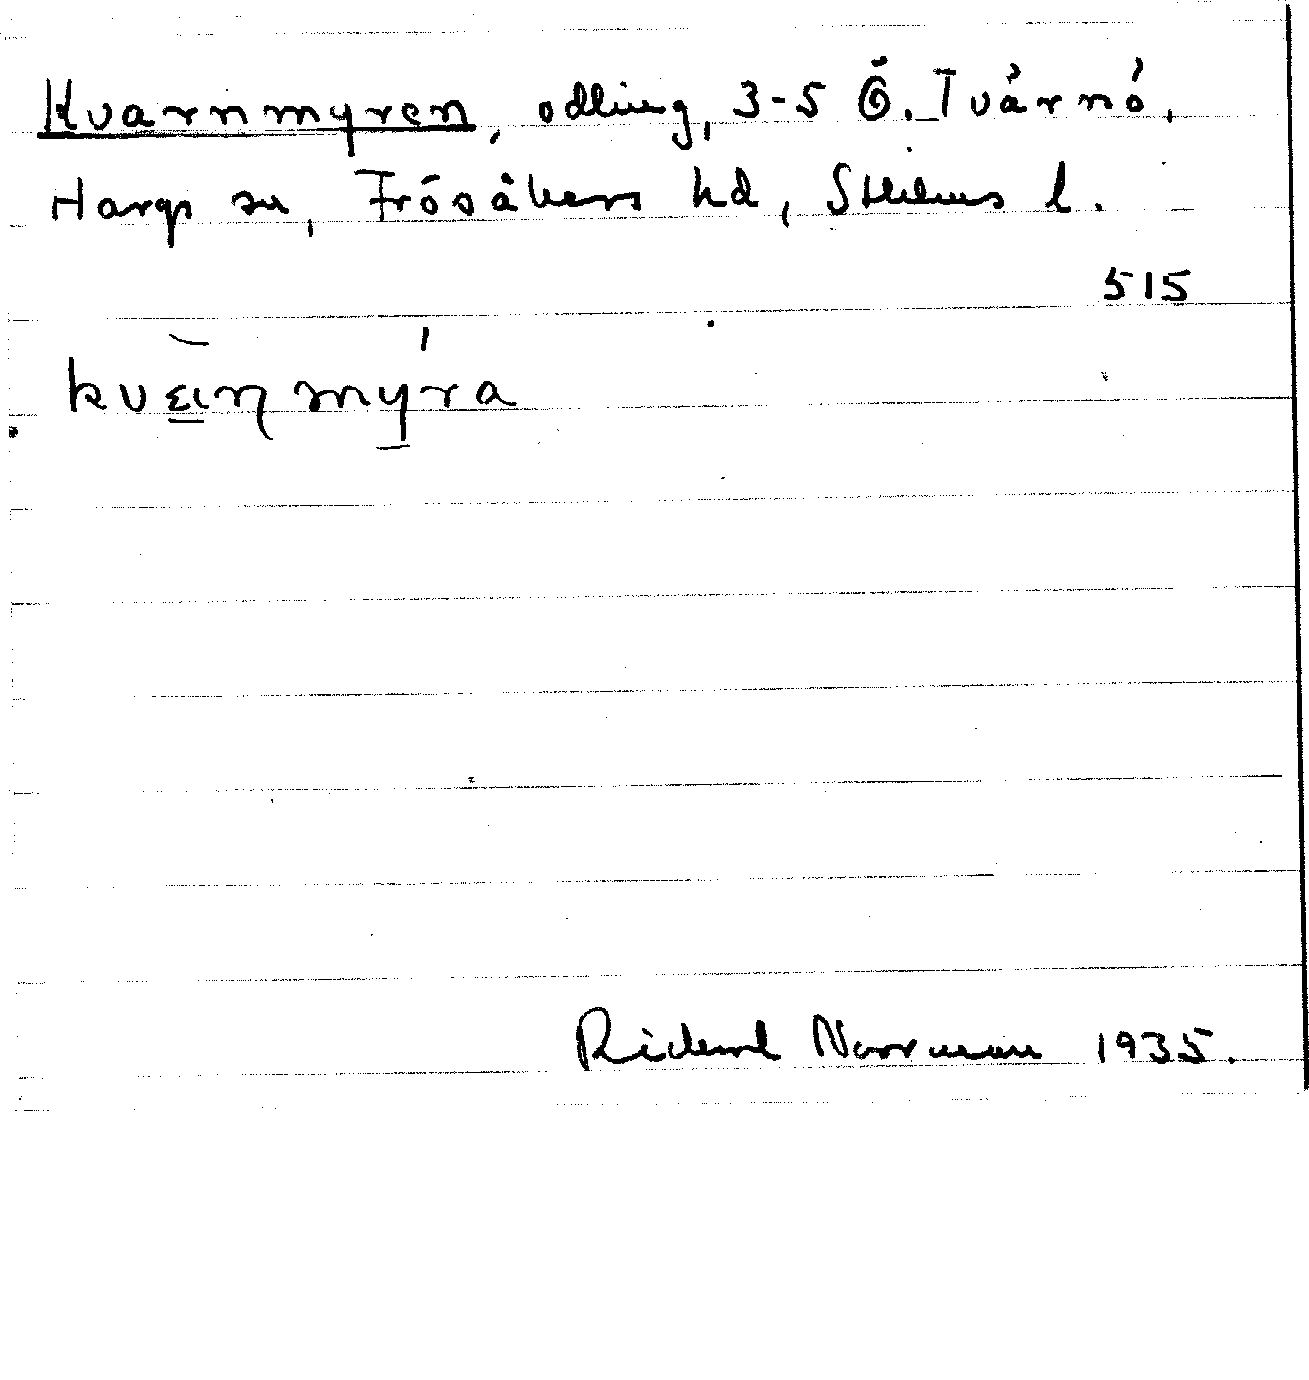 Kvarnmyren, odling, 3-5 Ö. Tvärnö,
Hargs sn, Frösåkers hd, Sthlms l.
515
kvæ̀ɳmýra
Rickard Norrman 1935.